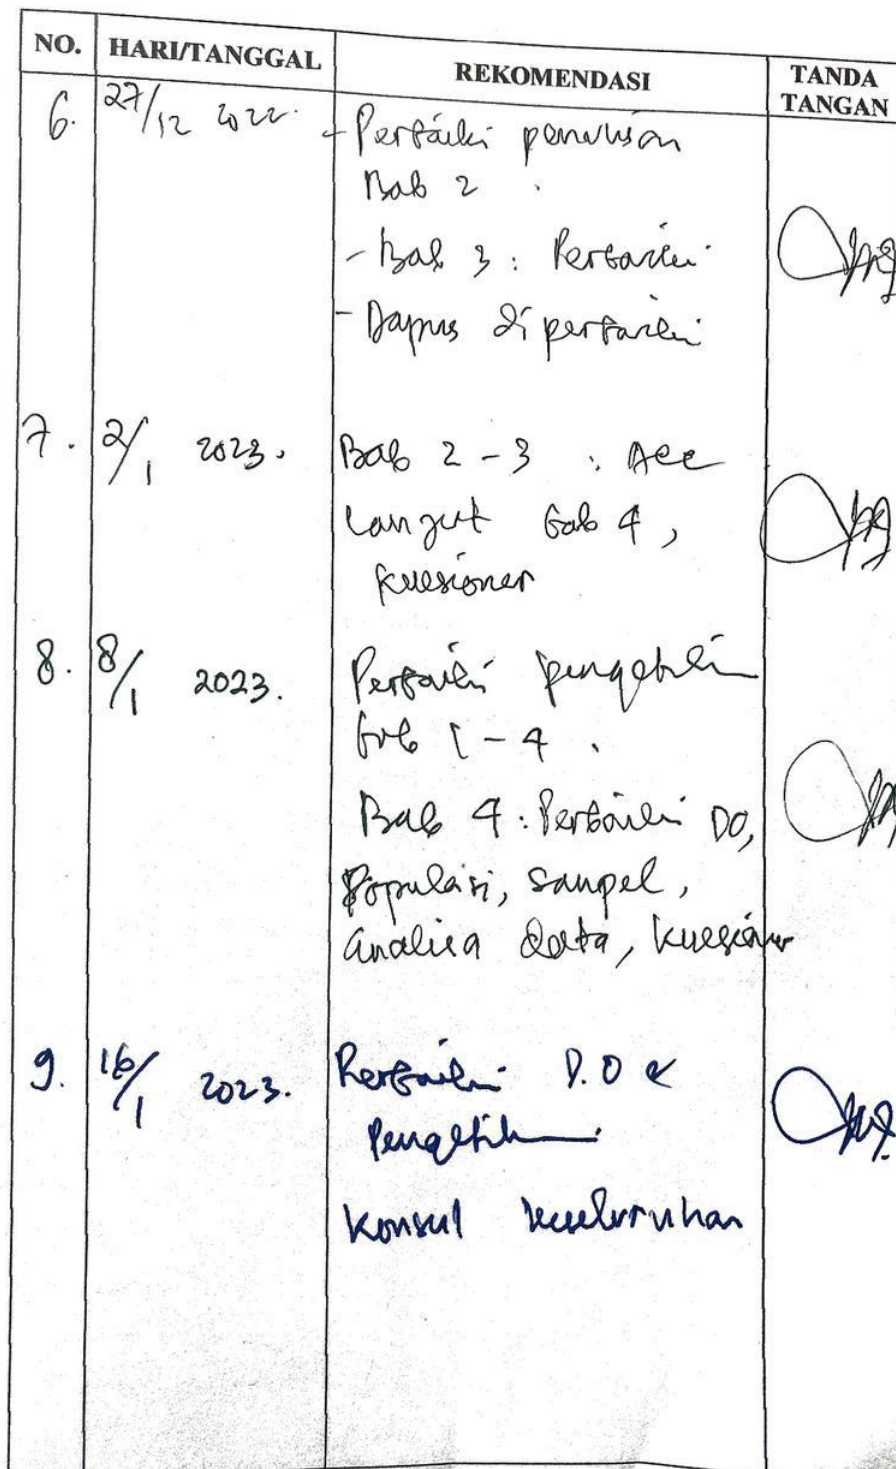 NO. HARI/TANGGAL REKOMENDASI TANDA TANGAN
6. 27/12 2022. - Perbaiki penulisan
Bab 2.
- Bab 3 : Perbaiki
- Dapus diperbaiki
7. 2/1 2023. Bab 2 - 3 : Acc
Lanjut bab 4,
kuesioner
8. 8/1 2023. Perbaiki pengetikan
bab 1 - 4.
Bab 4 : Perbaiki DO,
Populasi, sampel,
analisa data, kuesioner
9. 16/1 2023. Perbaiki D.O &
Pengetikan
Konsul keseluruhan